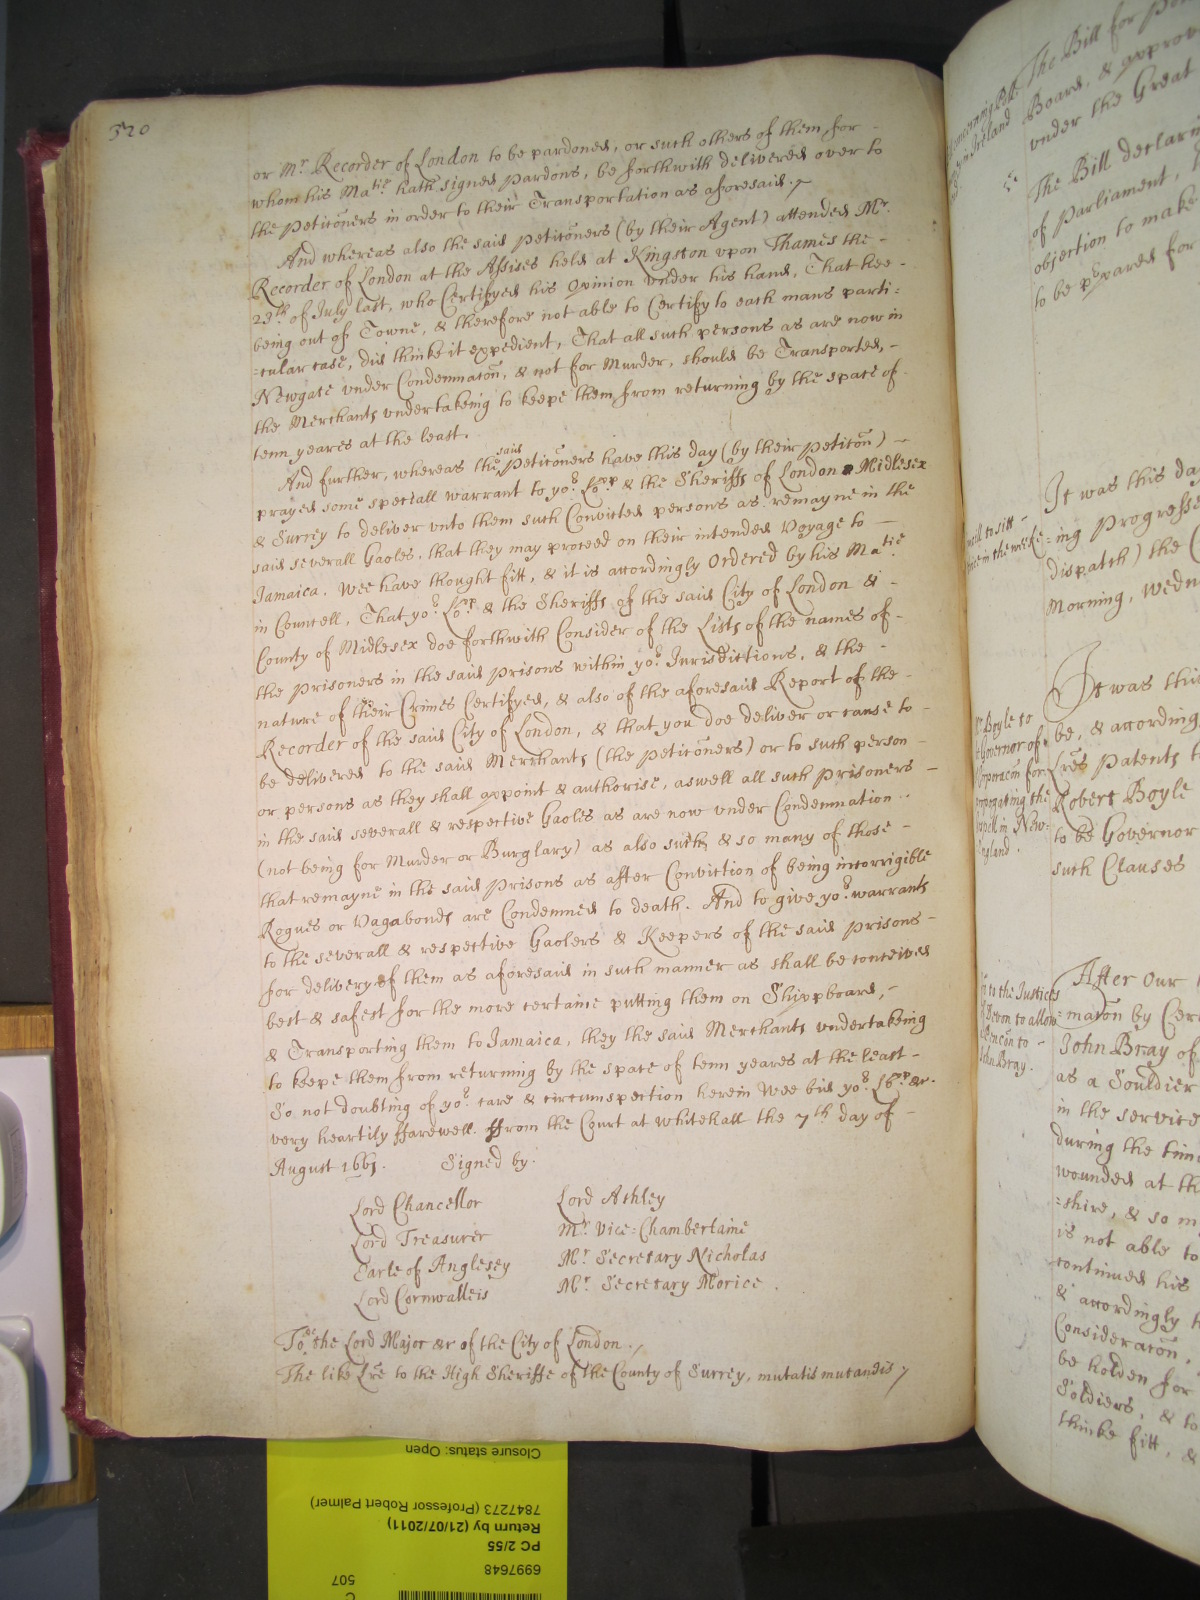 320
or Mr. Recorder of London to be pardoned, or such others of them for -
whom his Matie. hath signed Pardons, be forthwith delivered over to
the Peticõners in order to their Transportation as aforesaid.
And whereas also the said Peticõners (by their Agent) attended Mr.
Recorder of London at the Assises held at Kingston upon Thames the -
23th of July last, who Certifyed his Opinion under his hand, That hee -
being out of Towne, & therefore not able to Certify to each mans parti:
=cular case, did thinke it expedient, That all such persons as are now in
Newgate under Condemnacõn, & not for Murder, should be Transported, -
the Merchants undertakeing to keepe them from returning by the space of -
tenn yeares at the least.
And further, whereas the said Peticõners have this day (by their Peticõn) -
prayed some speciall warrant to yor. Lopp & the Sheriffs of London & Midlesex
& Surrey to deliver unto them such Convicted persons as remayne in the
said severall Gaoles, that they may proceed on their intended Voyage to -
Jamaica. Wee have thought fitt, & it is accordingly Ordered by his Matie.
in Councell, That yor. Lopp & the Sheriffs of the said City of London & -
County of Midlesex doe forthwith Consider of the Lists of the names of -
the Prisoners in the said Prisons within yor. Jurisdictions, & the -
nature of their Crimes Certifyed, & also of the aforesaid Report of the -
Recorder of the said City of London, & that you doe deliver or cause to -
be delivered to the said Merchants (the Peticõners) or to such person -
or persons as they shall appoint & authorise, aswell all such Prisoners -
in the said severall & respective Gaoles as are now under Condemnation -
(not being for Murder or Burglary) as also such & so many of those -
that remayne in the said Prisons as after Conviction of being incorrigible
Rogues or Vagabonds are Condemned to death. And to give yor. warrants
to the severall & respective Gaolers & Keepers of the said Prisons -
for delivery of them as aforesaid in such manner as shall be conceived
best & safest for the more certaine putting them on Shippboard, -
& Transporting them to Jamaica, they the said Merchants undertakeing
to keepe them from returning by the space of tenn yeares at the least -
So not doubting of yor. care & circumspection herein Wee bid yor. Lopp. &c.
very heartily ffarewell. ffrom the Court at Whitehall the 7th day of -
August 1661. Signed by.
Lord Chancellor
Lord Treasurer
Earle of Anglesey
Lord Cornwalleis
Lord Ashley
Mr. Vice=Chamberlaine
Mr. Secretary Nicholas
Mr. Secretary Morice.
To the Lord Major &c of the City of London.
The like Lrẽ to the High Sheriffe of the County of Surrey, mutatis mutandis
The Bill for
Board, & approv
under the Great
The Bill declari
of Parliament,
objection to make
to be prepared for
in Ireland
It was this da
=ing Progresse
dispatch) the
Morning, Wedn
to sitt -
in the weeke
It was this
be, & according
Lrẽs Patents t
Robert Boyle
to be Governor
such Clauses
Mr. Boyle to
Governor of
Corporacõn for
propagating the
in New=
England.
After Our
=macõn by Cert
John Bray of
as a Souldier
in the service
during the time
wounded at th
=shire, & so m
is not able to
continued his
& accordingly
Consideracõn,
be holden for
Soldiers, & to
thinke fitt, &
to the Justices
Devon to allow
to -
John Bray.
Closure status: Open
7847273 (Professor Robert Palmer)
Return by (21/07/2011)
PC 2/55
6997648
507
C